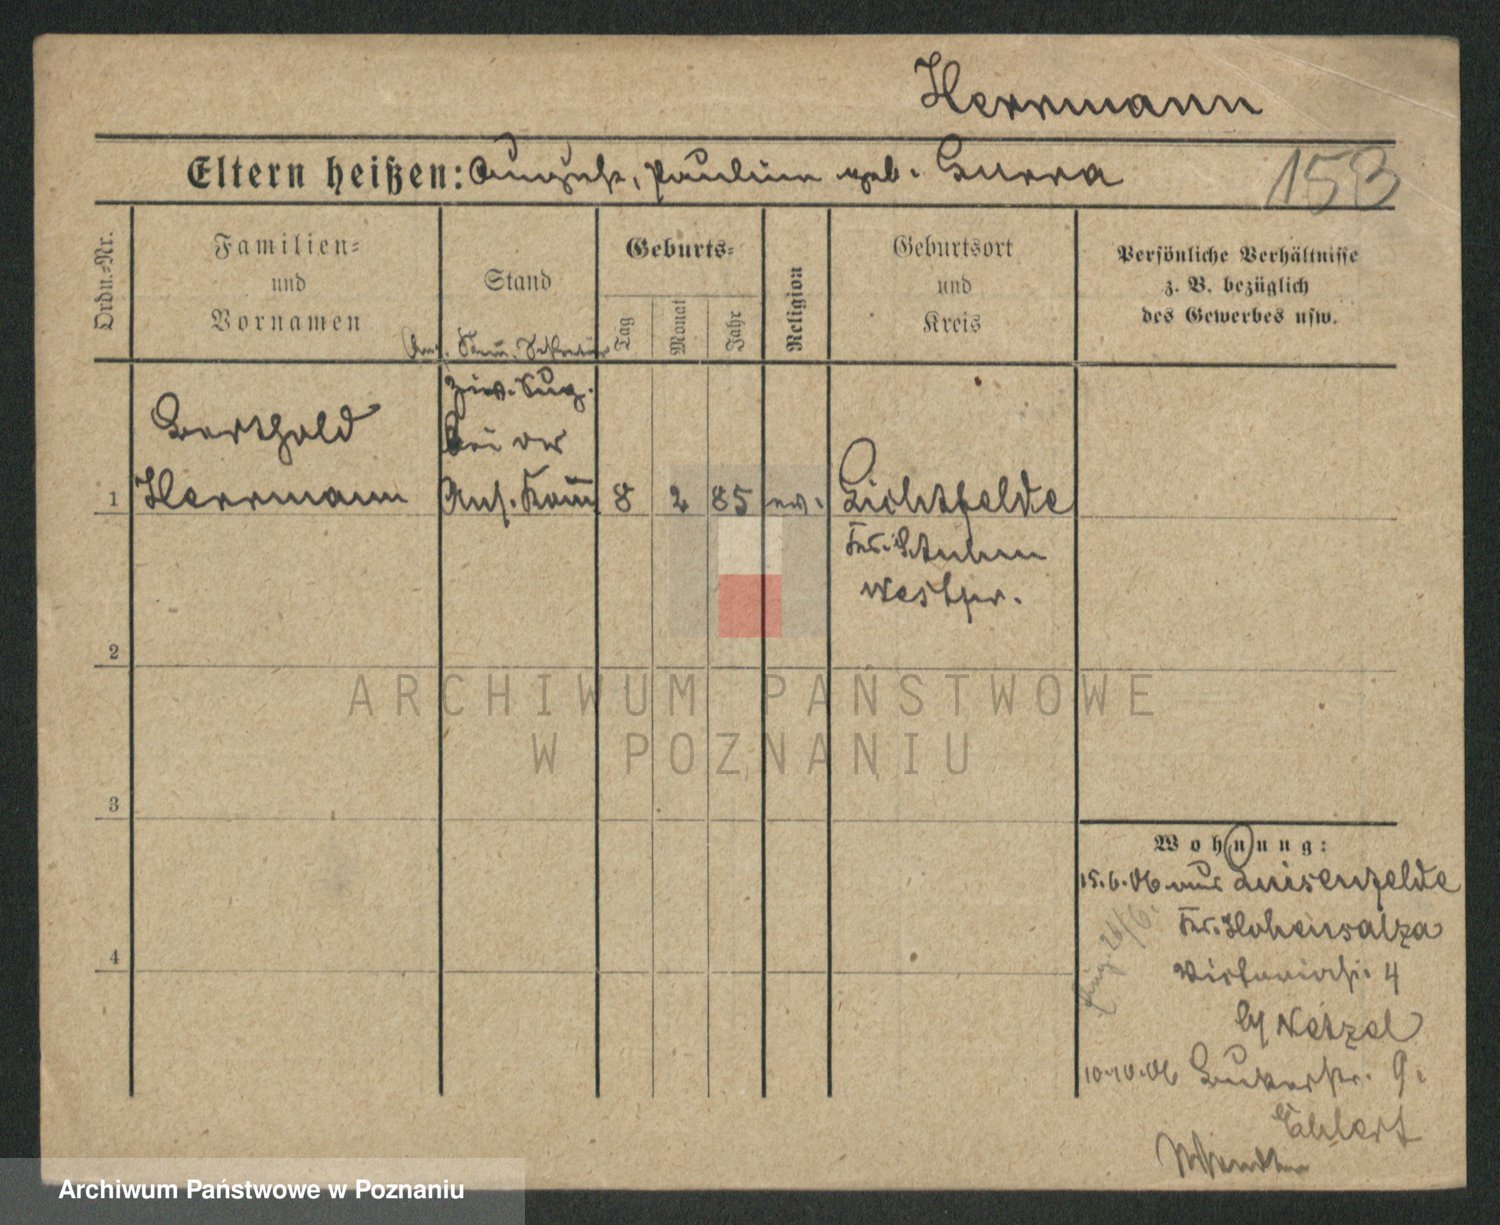 Herrmann
Eltern heißen: August, Pauline geb. Gurra
153
Ordn.-Nr.
Familien-
und
Vornamen
Stand
Geburts-
Tag
Monat
Jahr
Religion
Geburtsort
und
Kreis
Persönliche Verhältnisse
z. B. bezüglich
des Gewerbes usw.
Berthold
Ziv. Sup.
bei der
1 Herrmann Ans. Kom 8 2 85 ev. Lichtfelde
Kr. Stuhm
Westpr.
2
3
4
Wohnung:
15.6.06 aus Luisenfelde
Kr. Hohensalza
Victoriastr. 4
b/ Netzel
10.10.06 Bukerstr. 9.
Ehlert
ARCHIWUM PAŃSTWOWE
W POZNANIU
Archiwum Państwowe w Poznaniu